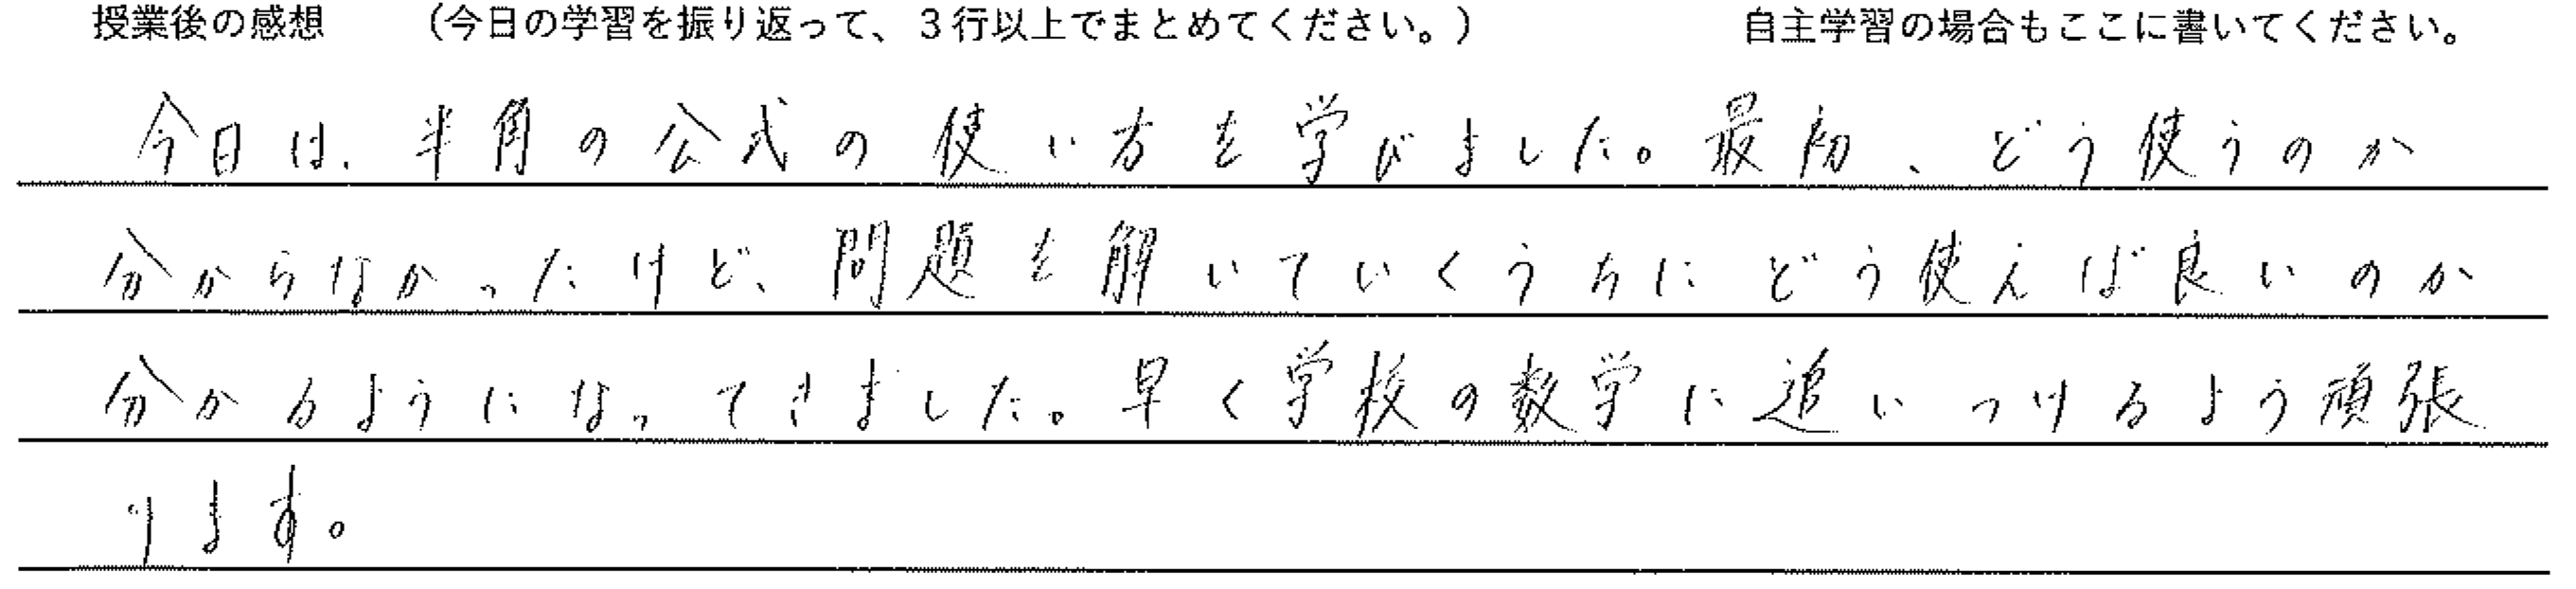 授業後の感想　（今日の学習を振り返って、３行以上でまとめてください。）　自主学習の場合もここに書いてください。
今日は、半角の公式の使い方を学びました。最初、どう使うのか
分からなかったけど、問題を解いていくうちにどう使えば良いのか
分かるようになってきました。早く学校の数学に追いつけるよう頑張
ります。